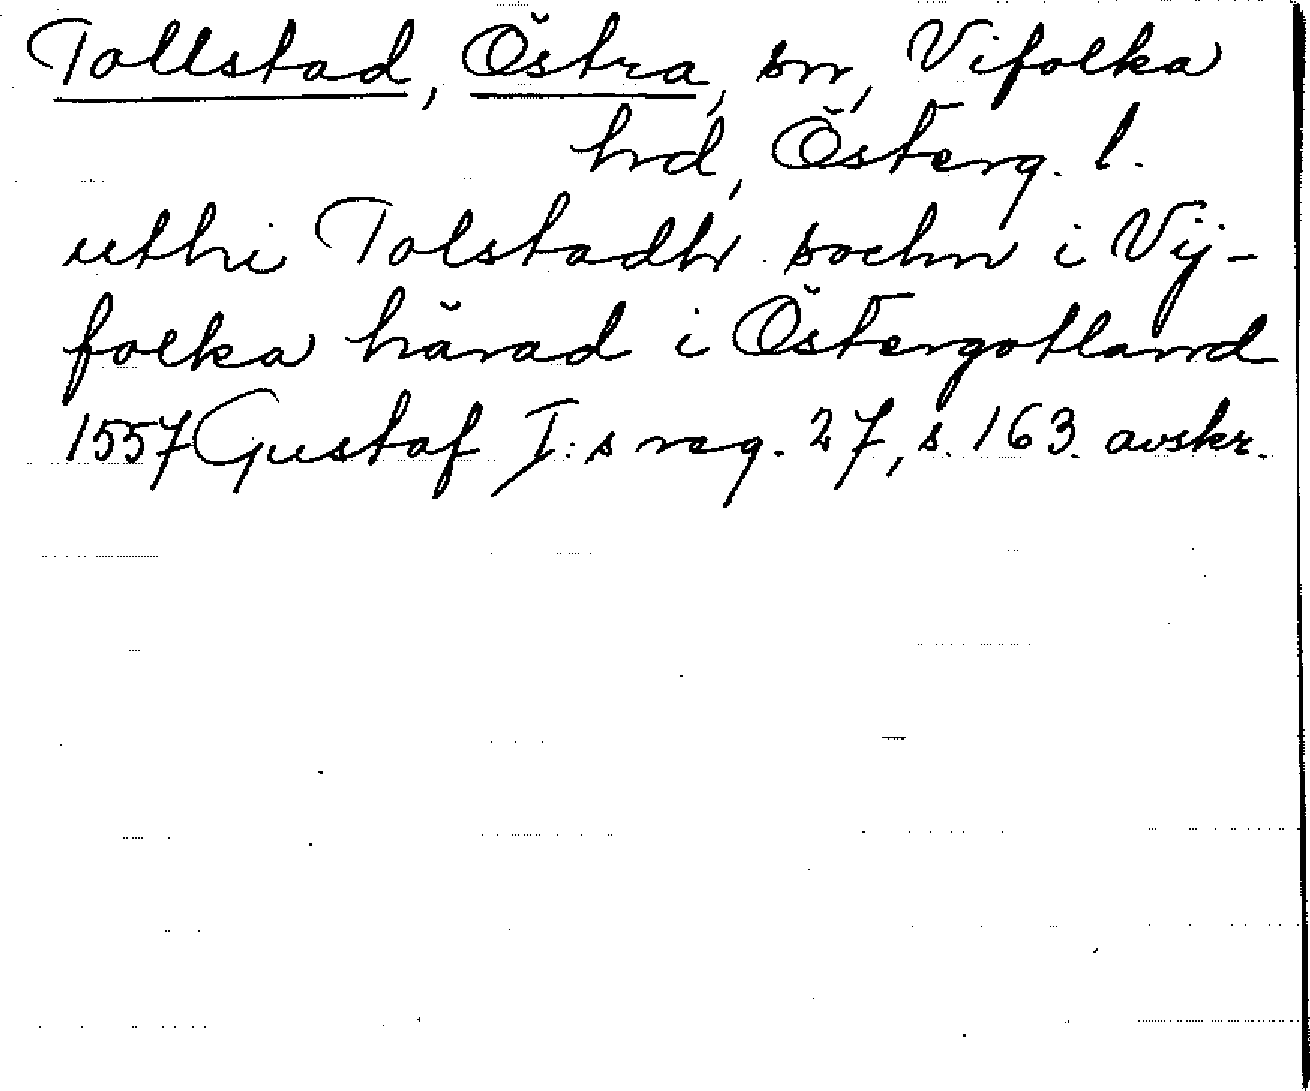 Tollstad, Östra, sn, Vifolka
hrd, Österg. l.
uthi Tolstadh sochn i Vij-
folka härad i Östergotland
1557 Gustaf I:s reg. 27, s. 163. avskr.